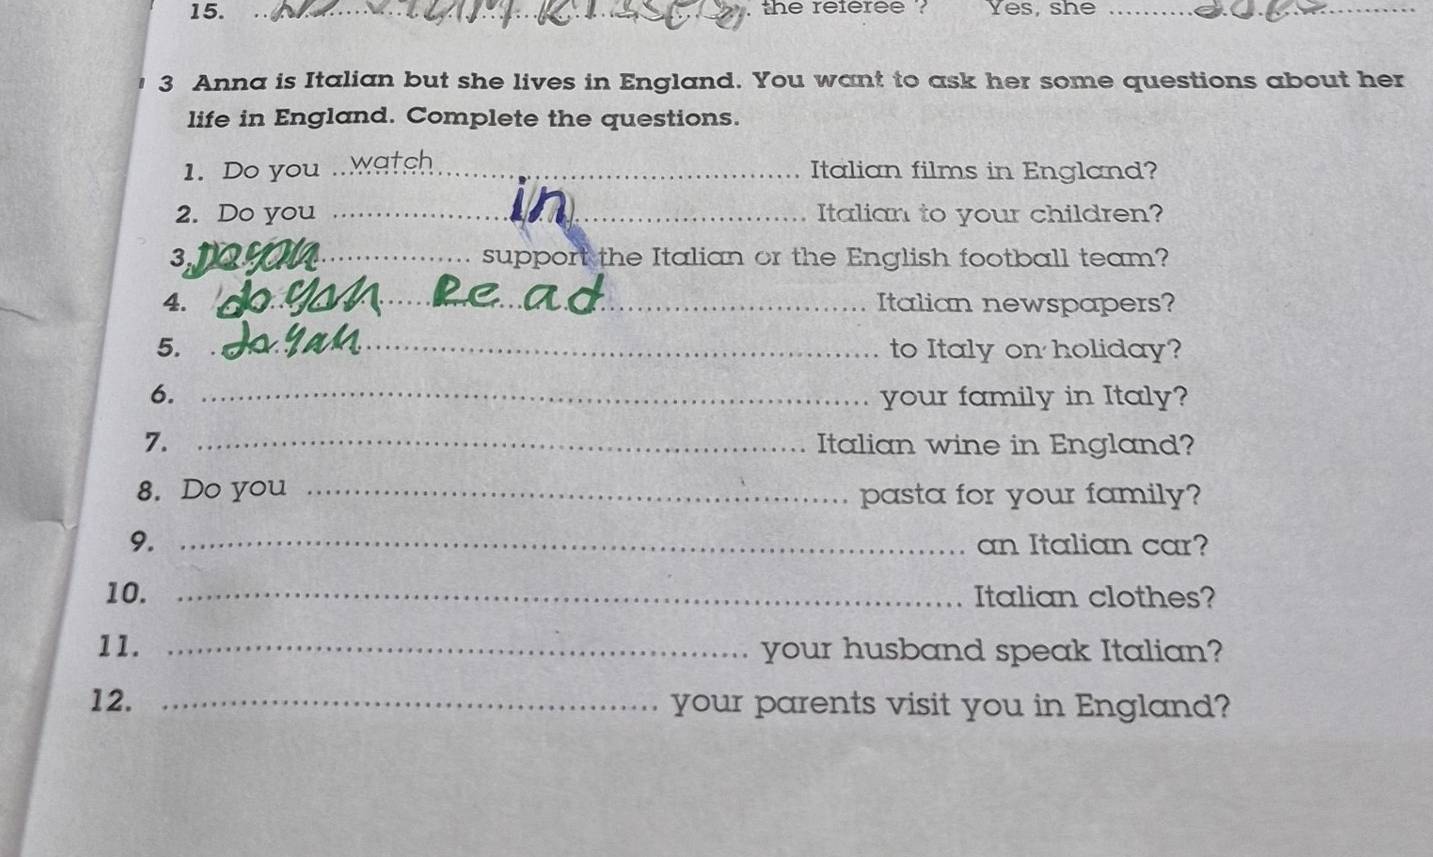 15. the referee ? Yes, she does
3 Anna is Italian but she lives in England. You want to ask her some questions about her
life in England. Complete the questions.
1. Do you watch Italian films in England?
2. Do you in Italian to your children?
3. Do you support the Italian or the English football team?
4. do you Read Italian newspapers?
5. do you to Italy on holiday?
6. your family in Italy?
7. Italian wine in England?
8. Do you pasta for your family?
9. an Italian car?
10. Italian clothes?
11. your husband speak Italian?
12. your parents visit you in England?